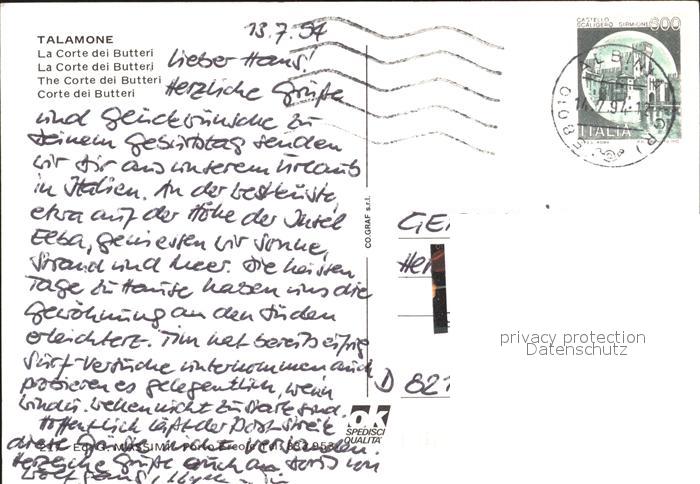 TALAMONE
La Corte dei Butteri
La Corte dei Butteri
The Corte dei Butteri
Corte dei Butteri
13.7.94
Lieber Hans!
Herzliche Grüße
und Glückwünsche zu
Deinem Geburtstag senden
wir Dir aus unserem Urlaub
in Italien. An der Westküste,
etwa auf der Höhe der Insel
Elba, geniessen wir Sonne,
Strand und Meer. Die heissen
Tage zu Hause haben uns die
Gewöhnung an den Süden
erleichtert. Tim hat bereits eifrig
Surf-Versuche unternommen auch
probieren es gelegentlich, wenn
Winde wehen nicht zu stark sind.
Hoffentlich läßt der Poststreik
diese Grüße nicht
Herzliche Grüße auch an Doris von
Wolfgang,
CO.GRAF s.r.l.
CASTELLO
SCALIGERO SIRMIONE
600
ITALIA
58010 ALBINIA (GR)
GE
He
D 821
OK
SPEDISCI
QUALITA'
privacy protection
Datenschutz